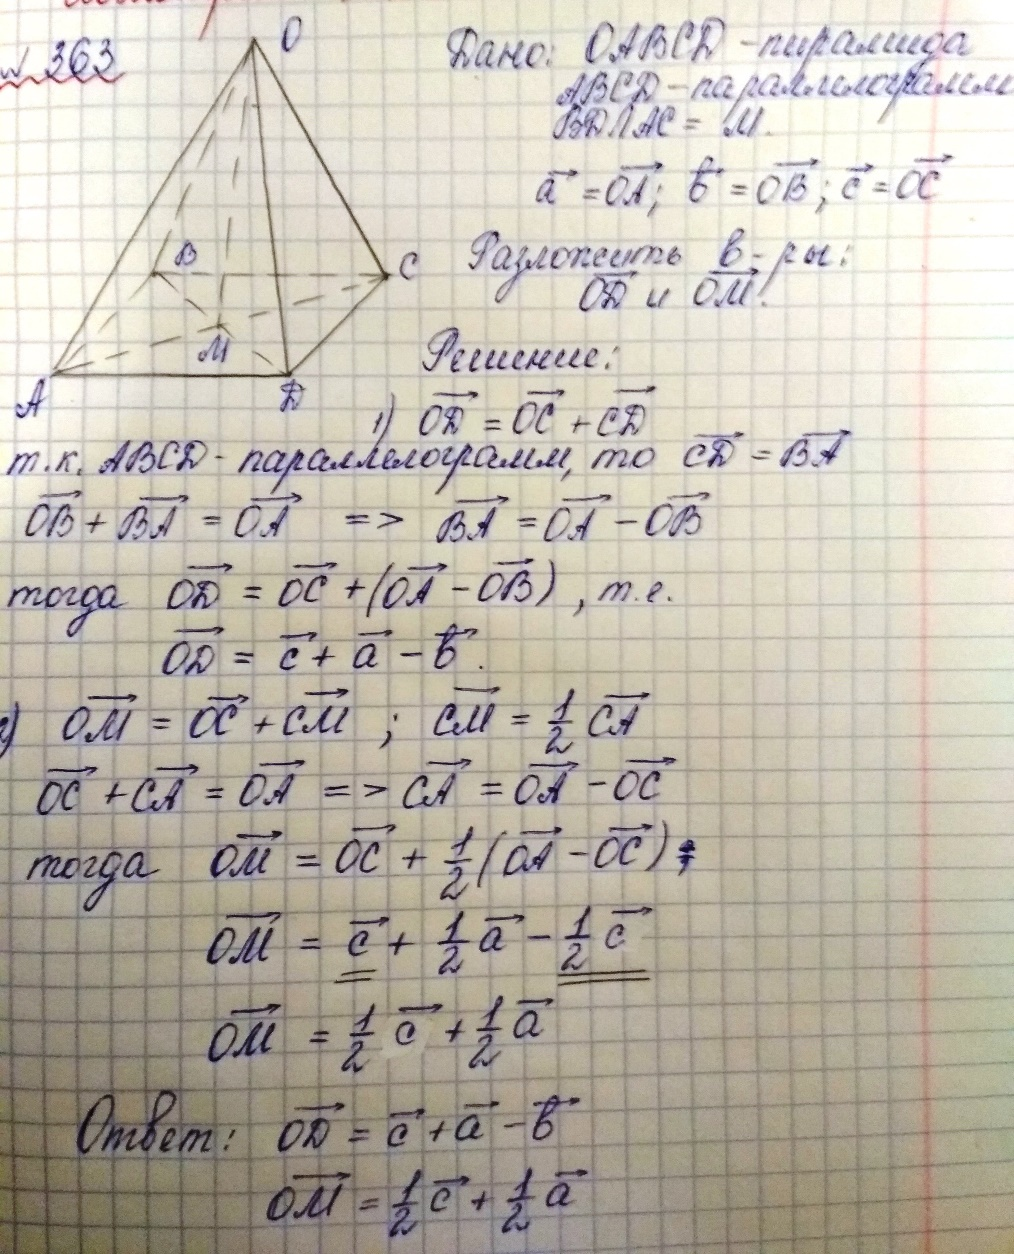 № 363
O
B
C
M
A
D
Дано: OABCD - пирамида
ABCD - параллелограмм
BD∩AC = M.
a⃗ = OA⃗; b⃗ = OB⃗; c⃗ = OC⃗
Разложить в-ры:
OD⃗ и OM⃗.
Решение:
1) OD⃗ = OC⃗ + CD⃗
т.к. ABCD - параллелограмм, то CD⃗ = BA⃗
OB⃗ + BA⃗ = OA⃗ => BA⃗ = OA⃗ - OB⃗
тогда OD⃗ = OC⃗ + (OA⃗ - OB⃗), т.е.
OD⃗ = c⃗ + a⃗ - b⃗.
2) OM⃗ = OC⃗ + CM⃗; CM⃗ = 1/2 CA⃗
OC⃗ + CA⃗ = OA⃗ => CA⃗ = OA⃗ - OC⃗
тогда OM⃗ = OC⃗ + 1/2 (OA⃗ - OC⃗);
OM⃗ = c⃗ + 1/2 a⃗ - 1/2 c⃗
OM⃗ = 1/2 c⃗ + 1/2 a⃗
Ответ: OD⃗ = c⃗ + a⃗ - b⃗
OM⃗ = 1/2 c⃗ + 1/2 a⃗